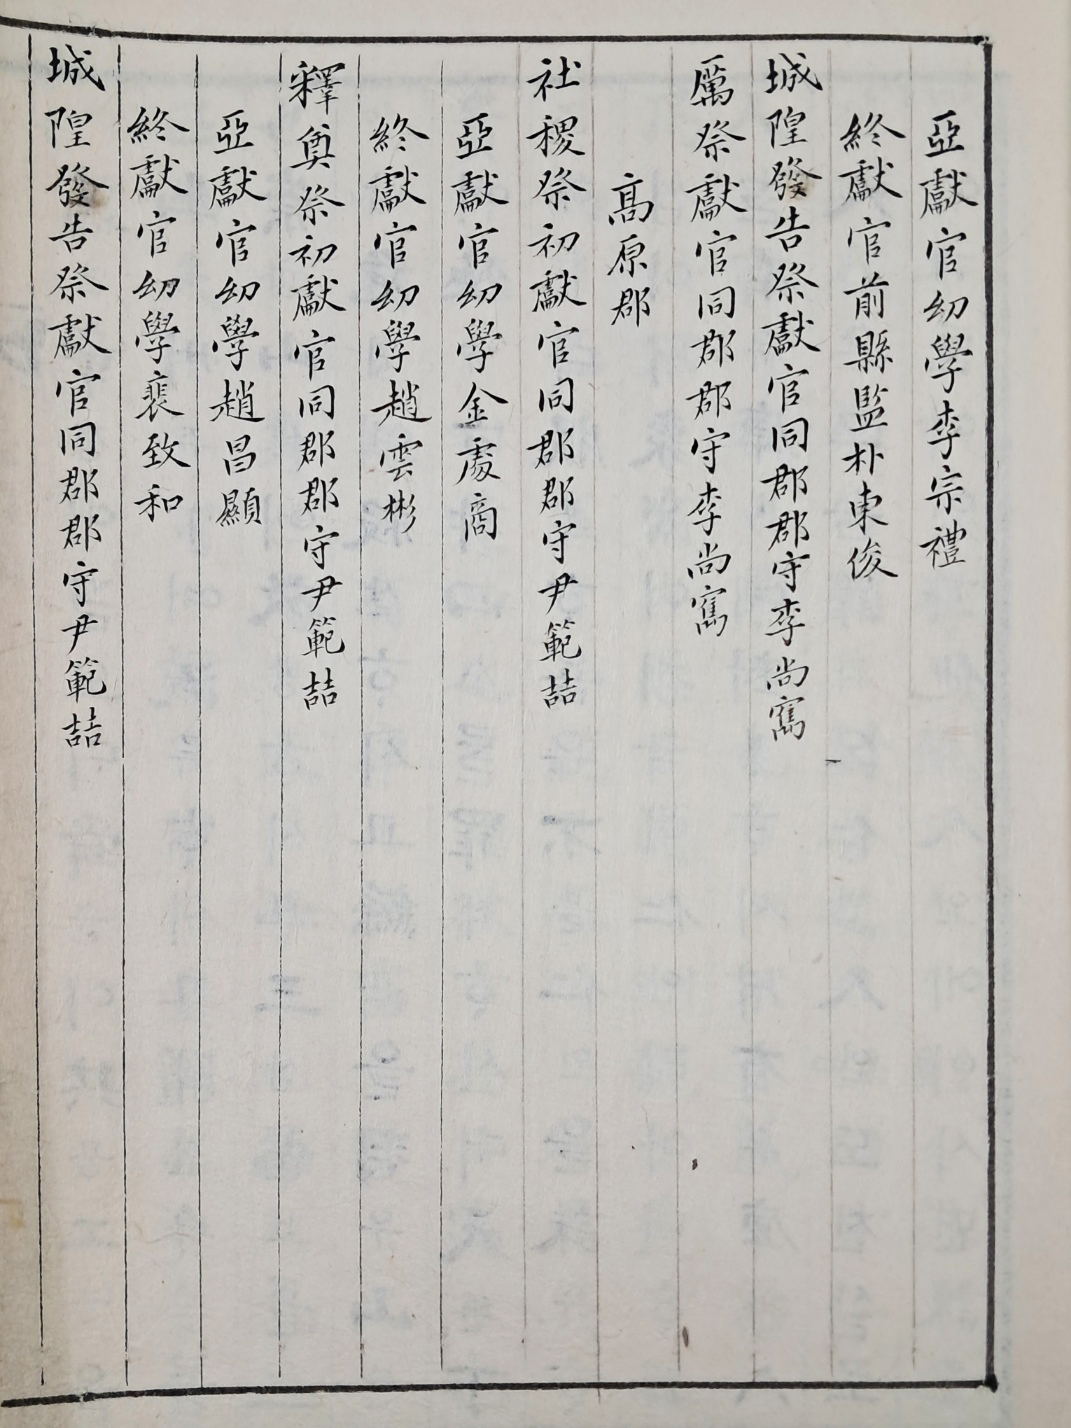 亞獻官幼學李宗禮
終獻官前縣監朴東俊
城隍發告祭獻官同郡郡守李尚寯
厲祭獻官同郡郡守李尚寯
高原郡
社稷祭初獻官同郡郡守尹範喆
亞獻官幼學金處商
終獻官幼學趙雲彬
釋奠祭初獻官同郡郡守尹範喆
亞獻官幼學趙昌顯
終獻官幼學裵致和
城隍發告祭獻官同郡郡守尹範喆